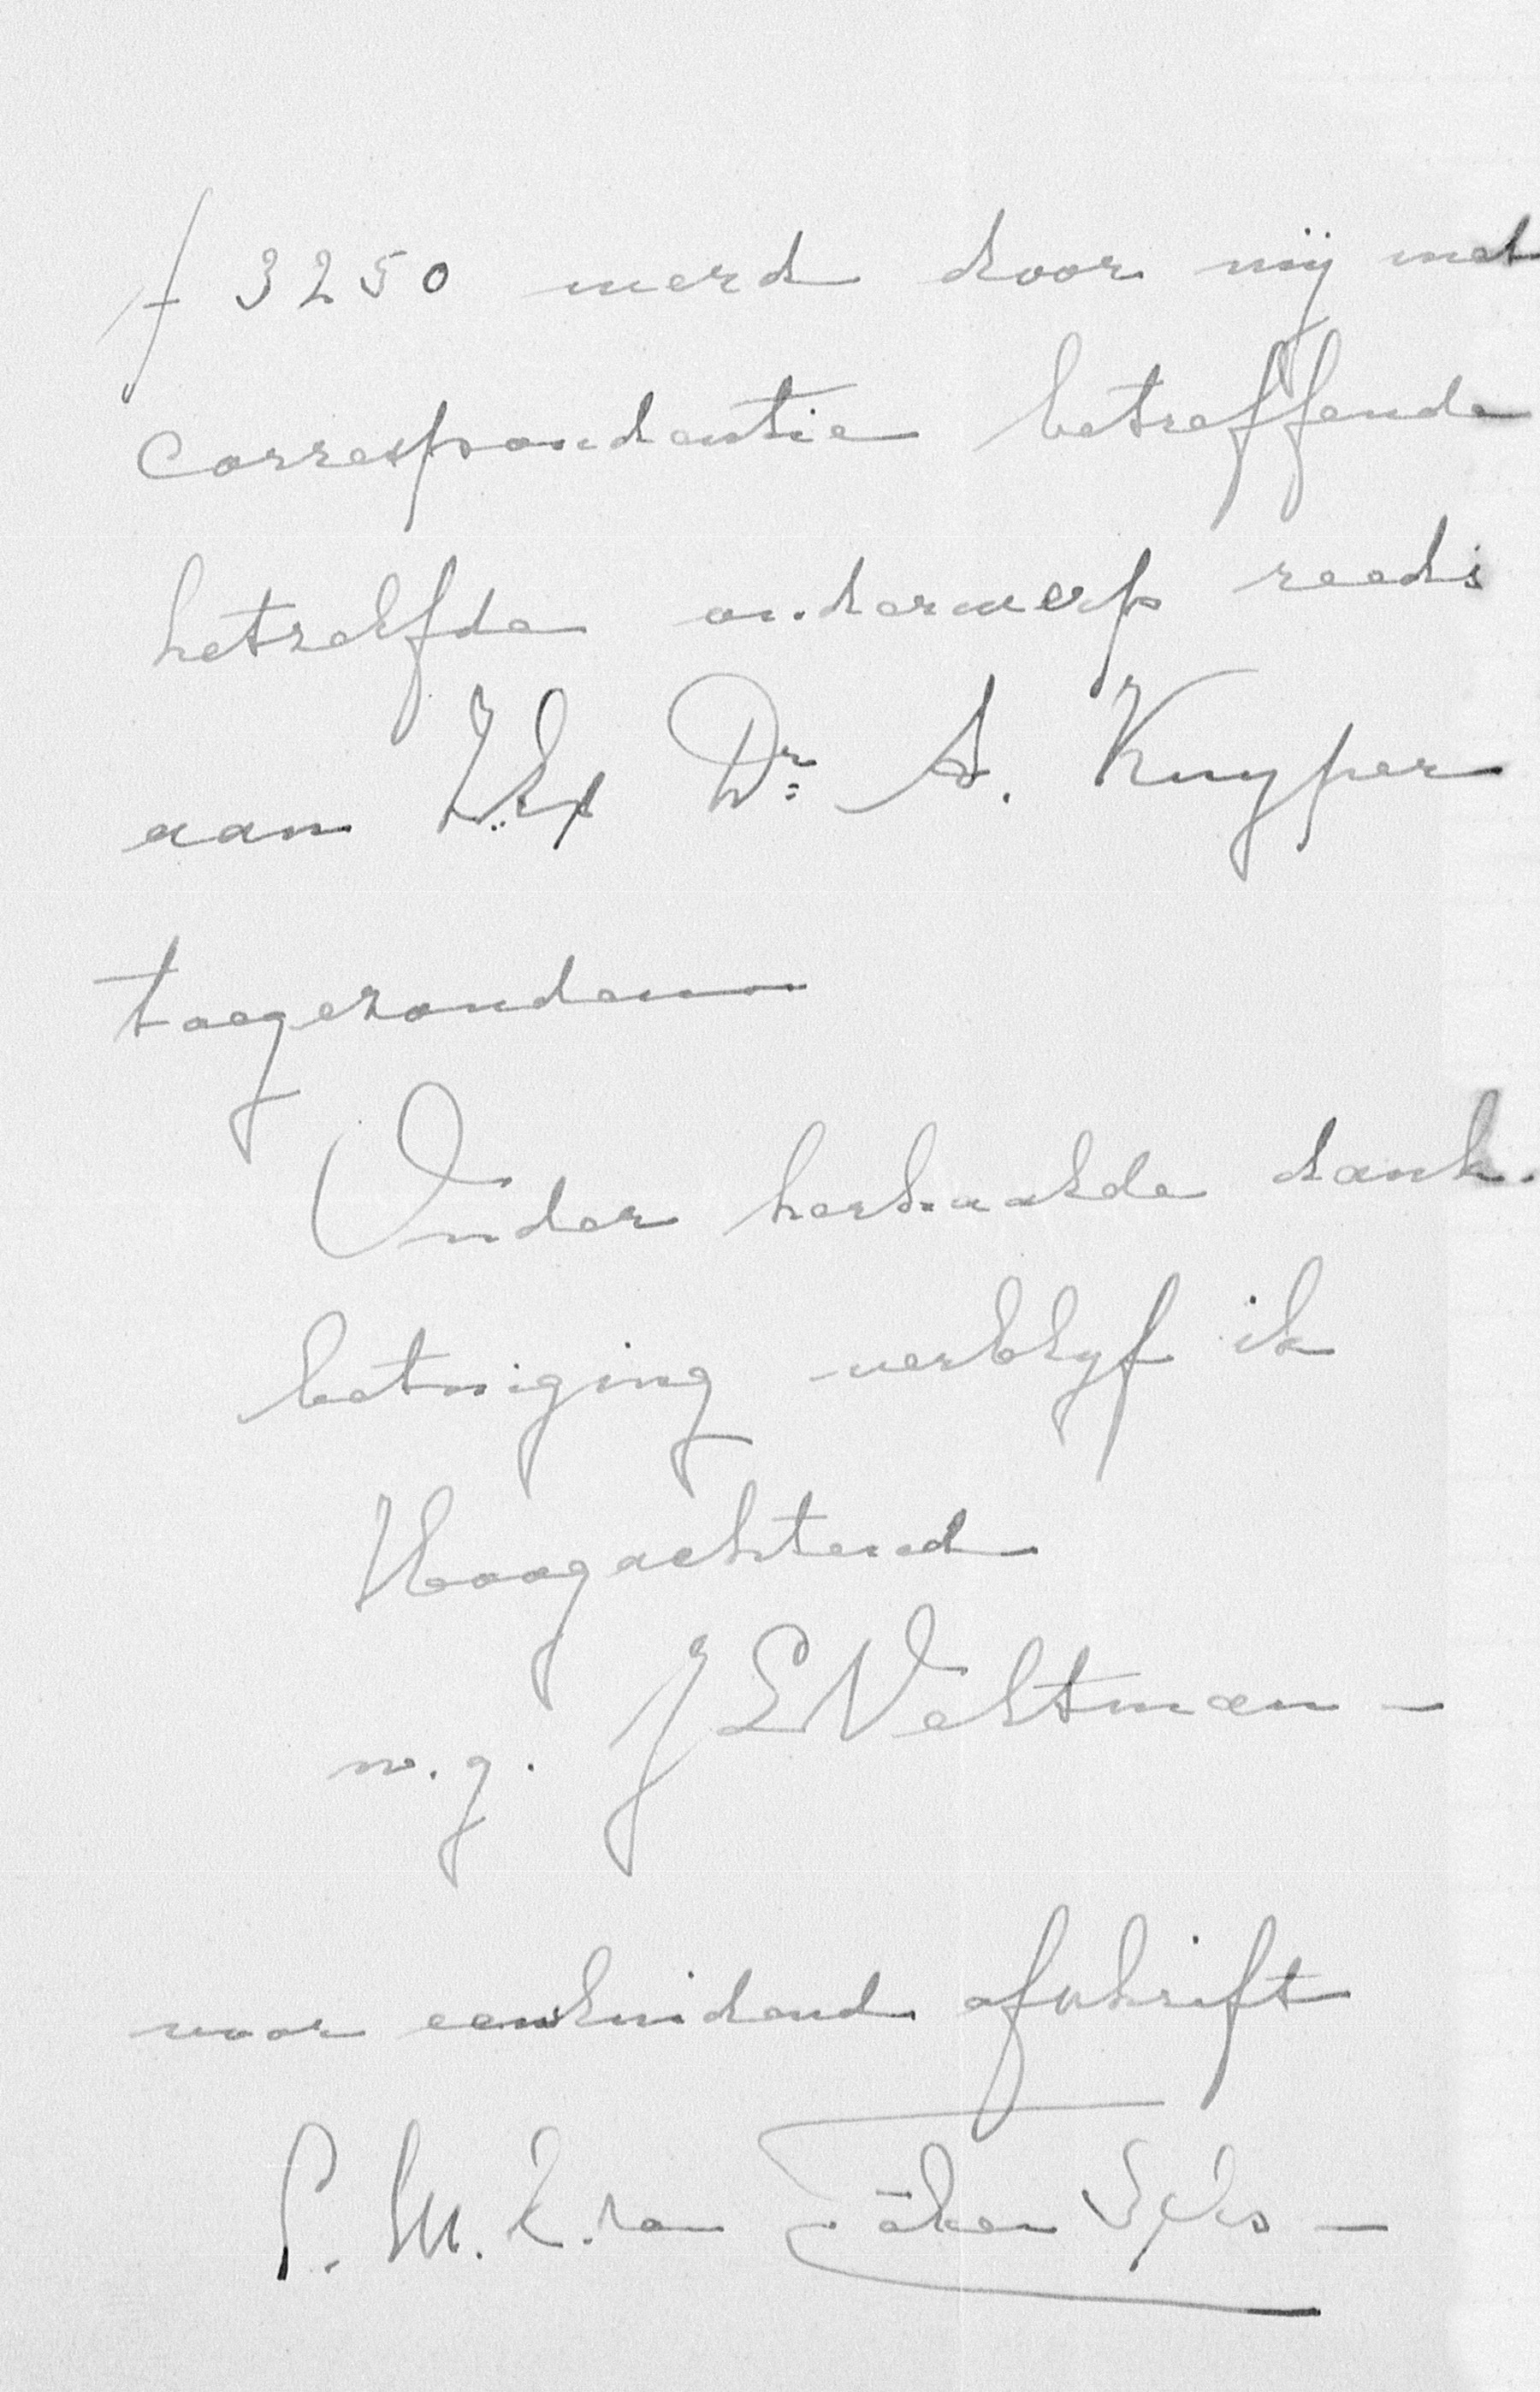 f 3250 werd door mij met
correspondentie betreffende
hetzelfde onderwerp reeds
aan Z.Ex Dr. A. Kuyper
toegezonden
Onder herhaalde dank-
betuiging verblijf ik
Hoogachtend
w.g. J L Veltman -
voor eensluidend afschrift